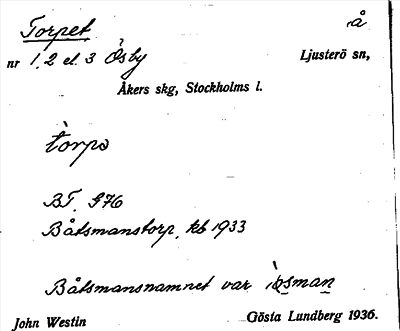 Torpet å
nr 1, 2 el. 3 Ösby Ljusterö sn,
Åkers skg, Stockholms l.
tòrpə
BT. 976
Båtsmanstorp, kb 1933
Båtsmansnamnet var ò̀sman
John Westin Gösta Lundberg 1936.